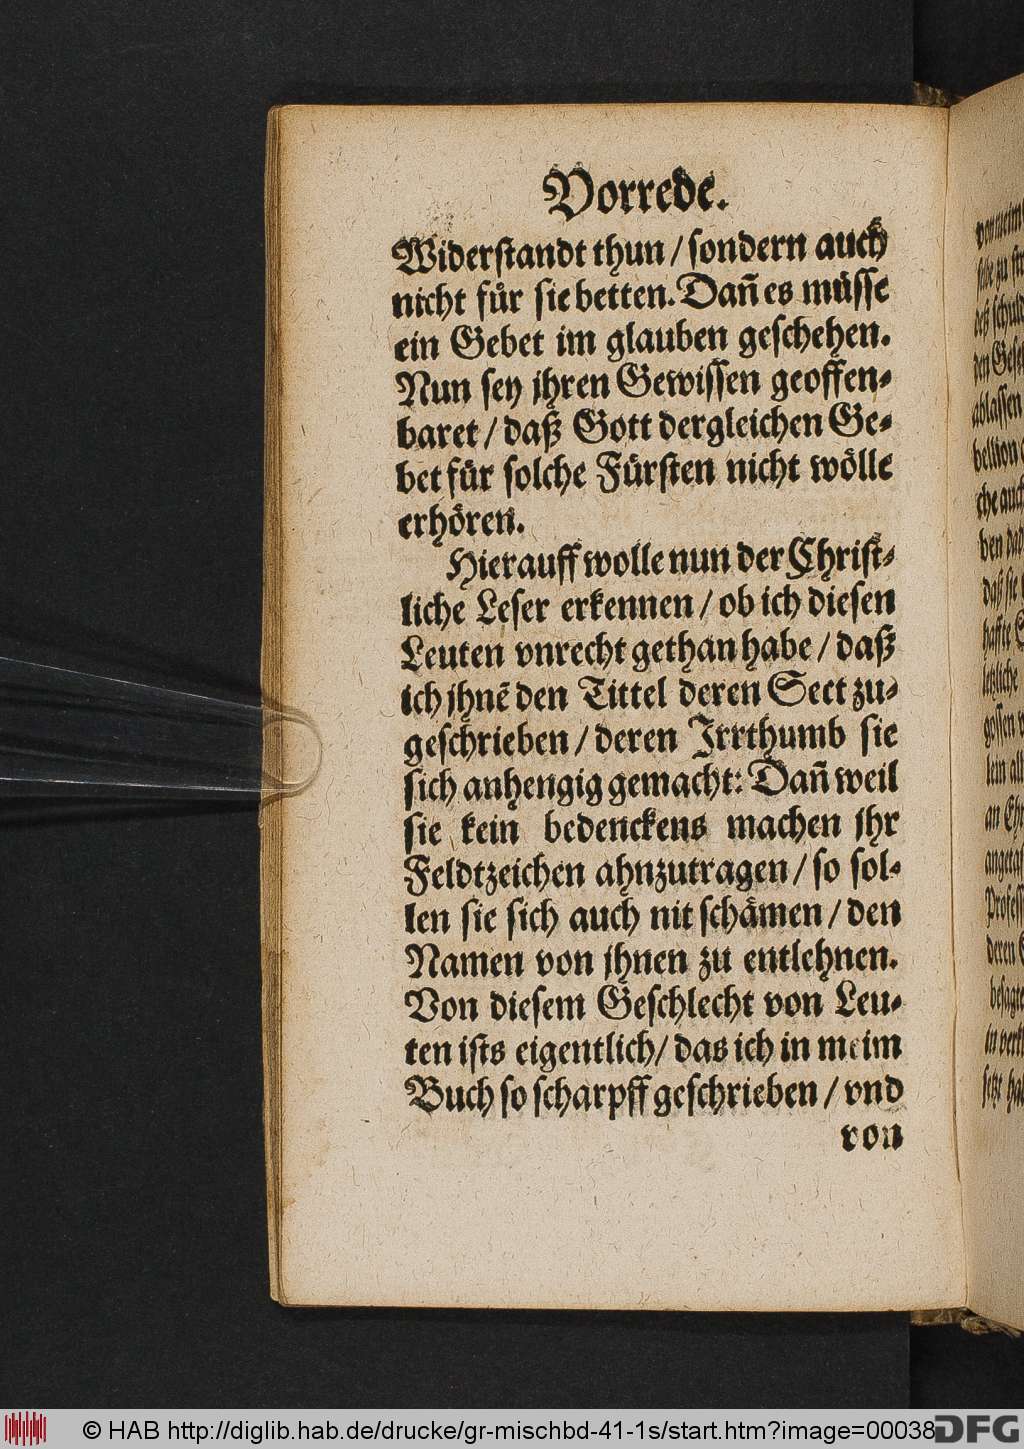 Vorrede.
Widerstandt thun / sondern auch
nicht für sie betten. Dañ es müsse
ein Gebet im glauben geschehen.
Nun sey jhren Gewissen geoffen-
baret / daß Gott dergleichen Ge-
bet für solche Fürsten nicht wölle
erhören.
Hierauff wolle nun der Christ-
liche Leser erkennen / ob ich diesen
Leuten vnrecht gethan habe / daß
ich jhnẽ den Tittel deren Sect zu-
geschrieben / deren Irrthumb sie
sich anhengig gemacht: Dañ weil
sie kein bedenckens machen jhr
Feldtzeichen ahnzutragen / so sol-
len sie sich auch nit schämen / den
Namen von jhnen zu entlehnen.
Von diesem Geschlecht von Leu-
ten ists eigentlich / das ich in meim
Buch so scharpff geschrieben / vnd
von
© HAB http://diglib.hab.de/drucke/gr-mischbd-41-1s/start.htm?image=00038
DFG